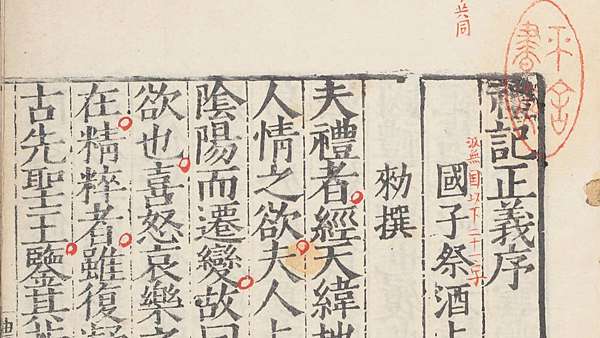 共同
禮記正義序
國子祭酒上
勑撰
夫禮者經天緯地
人情之欲夫人上
陰陽而遷變故曰
欲也喜怒哀樂之
在精粹者雖復凝
古先聖王鑒其